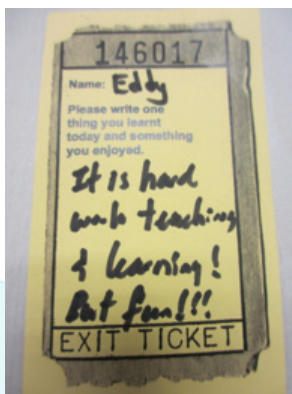 146017
Name: Eddy
Please write one
thing you learnt
today and something
you enjoyed.
It is hard
work teaching
& learning!
But fun!!!
EXIT TICKET